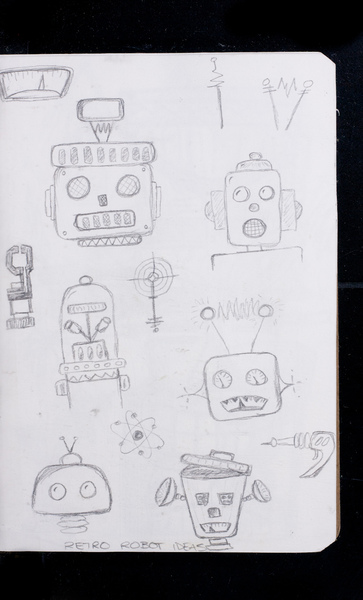 RETRO ROBOT IDEAS